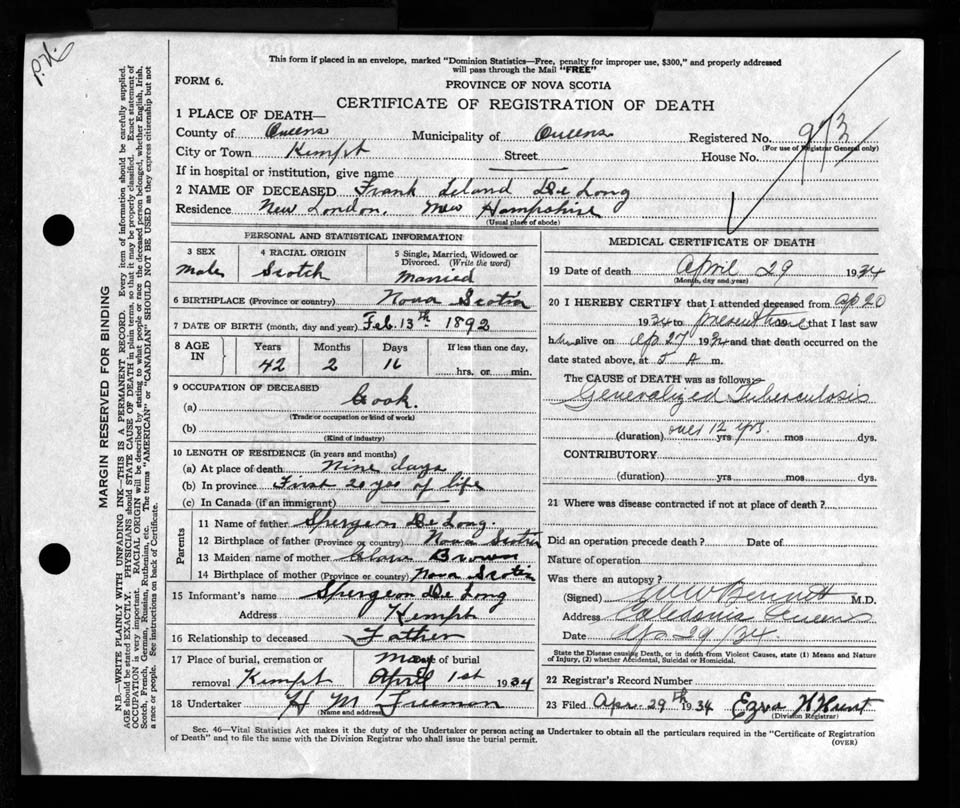 P.N.
This form if placed in an envelope, marked "Dominion Statistics—Free, penalty for improper use, $300," and properly addressed
will pass through the Mail "FREE"
FORM 6.
PROVINCE OF NOVA SCOTIA
CERTIFICATE OF REGISTRATION OF DEATH
1 PLACE OF DEATH—
County of Queens Municipality of Queens Registered No. 973
(For use of Registrar General only)
City or Town Kempt Street House No.
If in hospital or institution, give name
2 NAME OF DECEASED Frank Leland De Long
Residence New London, New Hampshire
(Usual place of abode)
PERSONAL AND STATISTICAL INFORMATION
3 SEX 4 RACIAL ORIGIN 5 Single, Married, Widowed or
Divorced. (Write the word)
Male Scotch Married
6 BIRTHPLACE (Province or country) Nova Scotia
7 DATE OF BIRTH (month, day and year) Feb. 13th 1892
8 AGE IN Years Months Days If less than one day,
42 2 16 hrs. or min.
9 OCCUPATION OF DECEASED
(a) Cook.
(Trade or occupation or kind of work)
(b)
(Kind of industry)
10 LENGTH OF RESIDENCE (in years and months)
(a) At place of death nine days
(b) In province First 20 yrs of life
(c) In Canada (if an immigrant)
Parents
11 Name of father Spergeon De Long.
12 Birthplace of father (Province or country) Nova Scotia
13 Maiden name of mother Brown
14 Birthplace of mother (Province or country) Nova Scotia
15 Informant's name Spergeon De Long
Address Kempt
16 Relationship to deceased Father
17 Place of burial, cremation or May of burial
removal Kempt April 1st 1934
18 Undertaker H M Freeman
(Name and address)
MEDICAL CERTIFICATE OF DEATH
19 Date of death April 29 1934
(Month, day and year)
20 I HEREBY CERTIFY that I attended deceased from Ap 20
1934 to present time that I last saw
him alive on Ap 27 1934 and that death occurred on the
date stated above, at 5 A m.
The CAUSE of DEATH was as follows:
Generalized Tuberculosis
(duration) over 12 yrs. yrs mos dys.
CONTRIBUTORY
(duration) yrs mos dys.
21 Where was disease contracted if not at place of death?
Did an operation precede death? Date of
Nature of operation
Was there an autopsy?
(Signed) Bennett M.D.
Address Caledonia Queens
Date Ap 29/34
State the Disease causing Death, or in death from Violent Causes, state (1) Means and Nature
of Injury, (2) whether Accidental, Suicidal or Homicidal.
22 Registrar's Record Number
23 Filed Apr. 29th 1934 Ezra H Hunt
(Division Registrar)
Sec. 46—Vital Statistics Act makes it the duty of the Undertaker or person acting as Undertaker to obtain all the particulars required in the "Certificate of Registration
of Death" and to file the same with the Division Registrar who shall issue the burial permit.
(OVER)
MARGIN RESERVED FOR BINDING
N.B.—WRITE PLAINLY WITH UNFADING INK—THIS IS A PERMANENT RECORD. Every item of information should be carefully supplied.
AGE should be stated EXACTLY. PHYSICIANS should STATE CAUSE OF DEATH in plain terms, so that it may be properly classified. Exact statement of
OCCUPATION is very important. RACIAL ORIGIN will be described by stating to what people or race the deceased person belonged, whether English, Irish,
Scotch, French, German, Russian, Ruthenian, etc. The terms "AMERICAN" or "CANADIAN" SHOULD NOT BE USED as they express citizenship but not
a race or people. See instructions on back of Certificate.